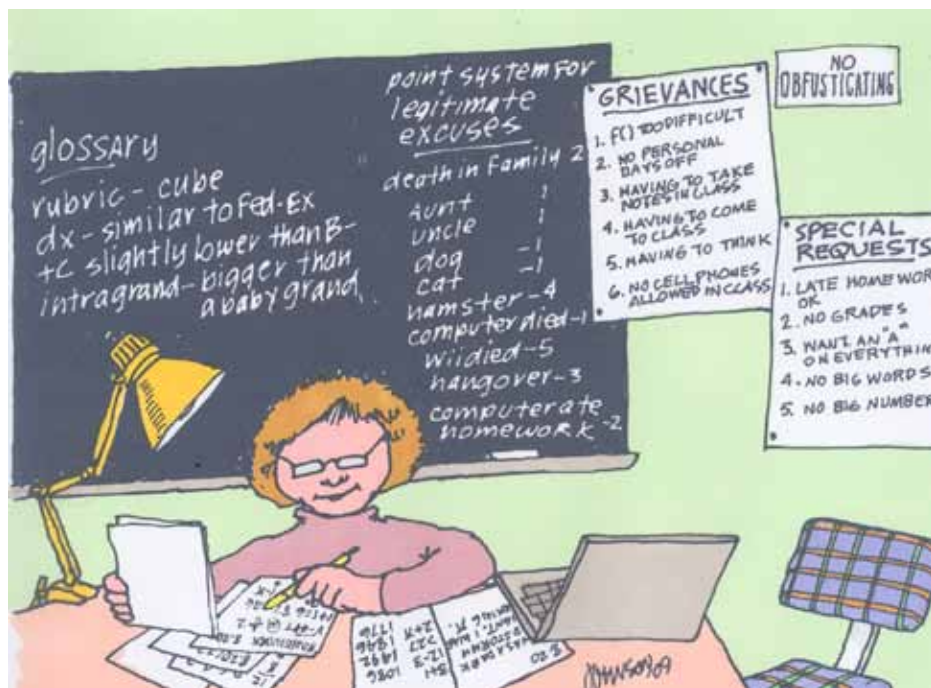 glossary
rubric - cube
dx - similar to Fed-Ex
+C slightly lower than B-
intragrand - bigger than
a baby grand
point system for
legitimate
excuses
death in family 2
Aunt 1
uncle 1
dog -1
cat -1
hamster -4
computer died -1
wii died -5
hangover -3
computer ate
homework -2
GRIEVANCES
1. f() TOO DIFFICULT
2. NO PERSONAL
DAYS OFF
3. HAVING TO TAKE
NOTES IN CLASS
4. HAVING TO COME
TO CLASS
5. HAVING TO THINK
6. NO CELL PHONES
ALLOWED IN CLASS
NO
OBFUSTICATING
SPECIAL
REQUESTS
1. LATE HOMEWOR
OK
2. NO GRADES
3. WANT AN "A"
ON EVERYTHIN
4. NO BIG WORDS
5. NO BIG NUMBER
1086
1492
1846
1976
8-20
JOHNSON 09